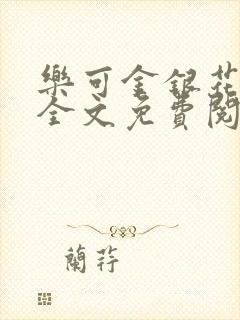 樂可金銀花
全文免費閱
蘭荇